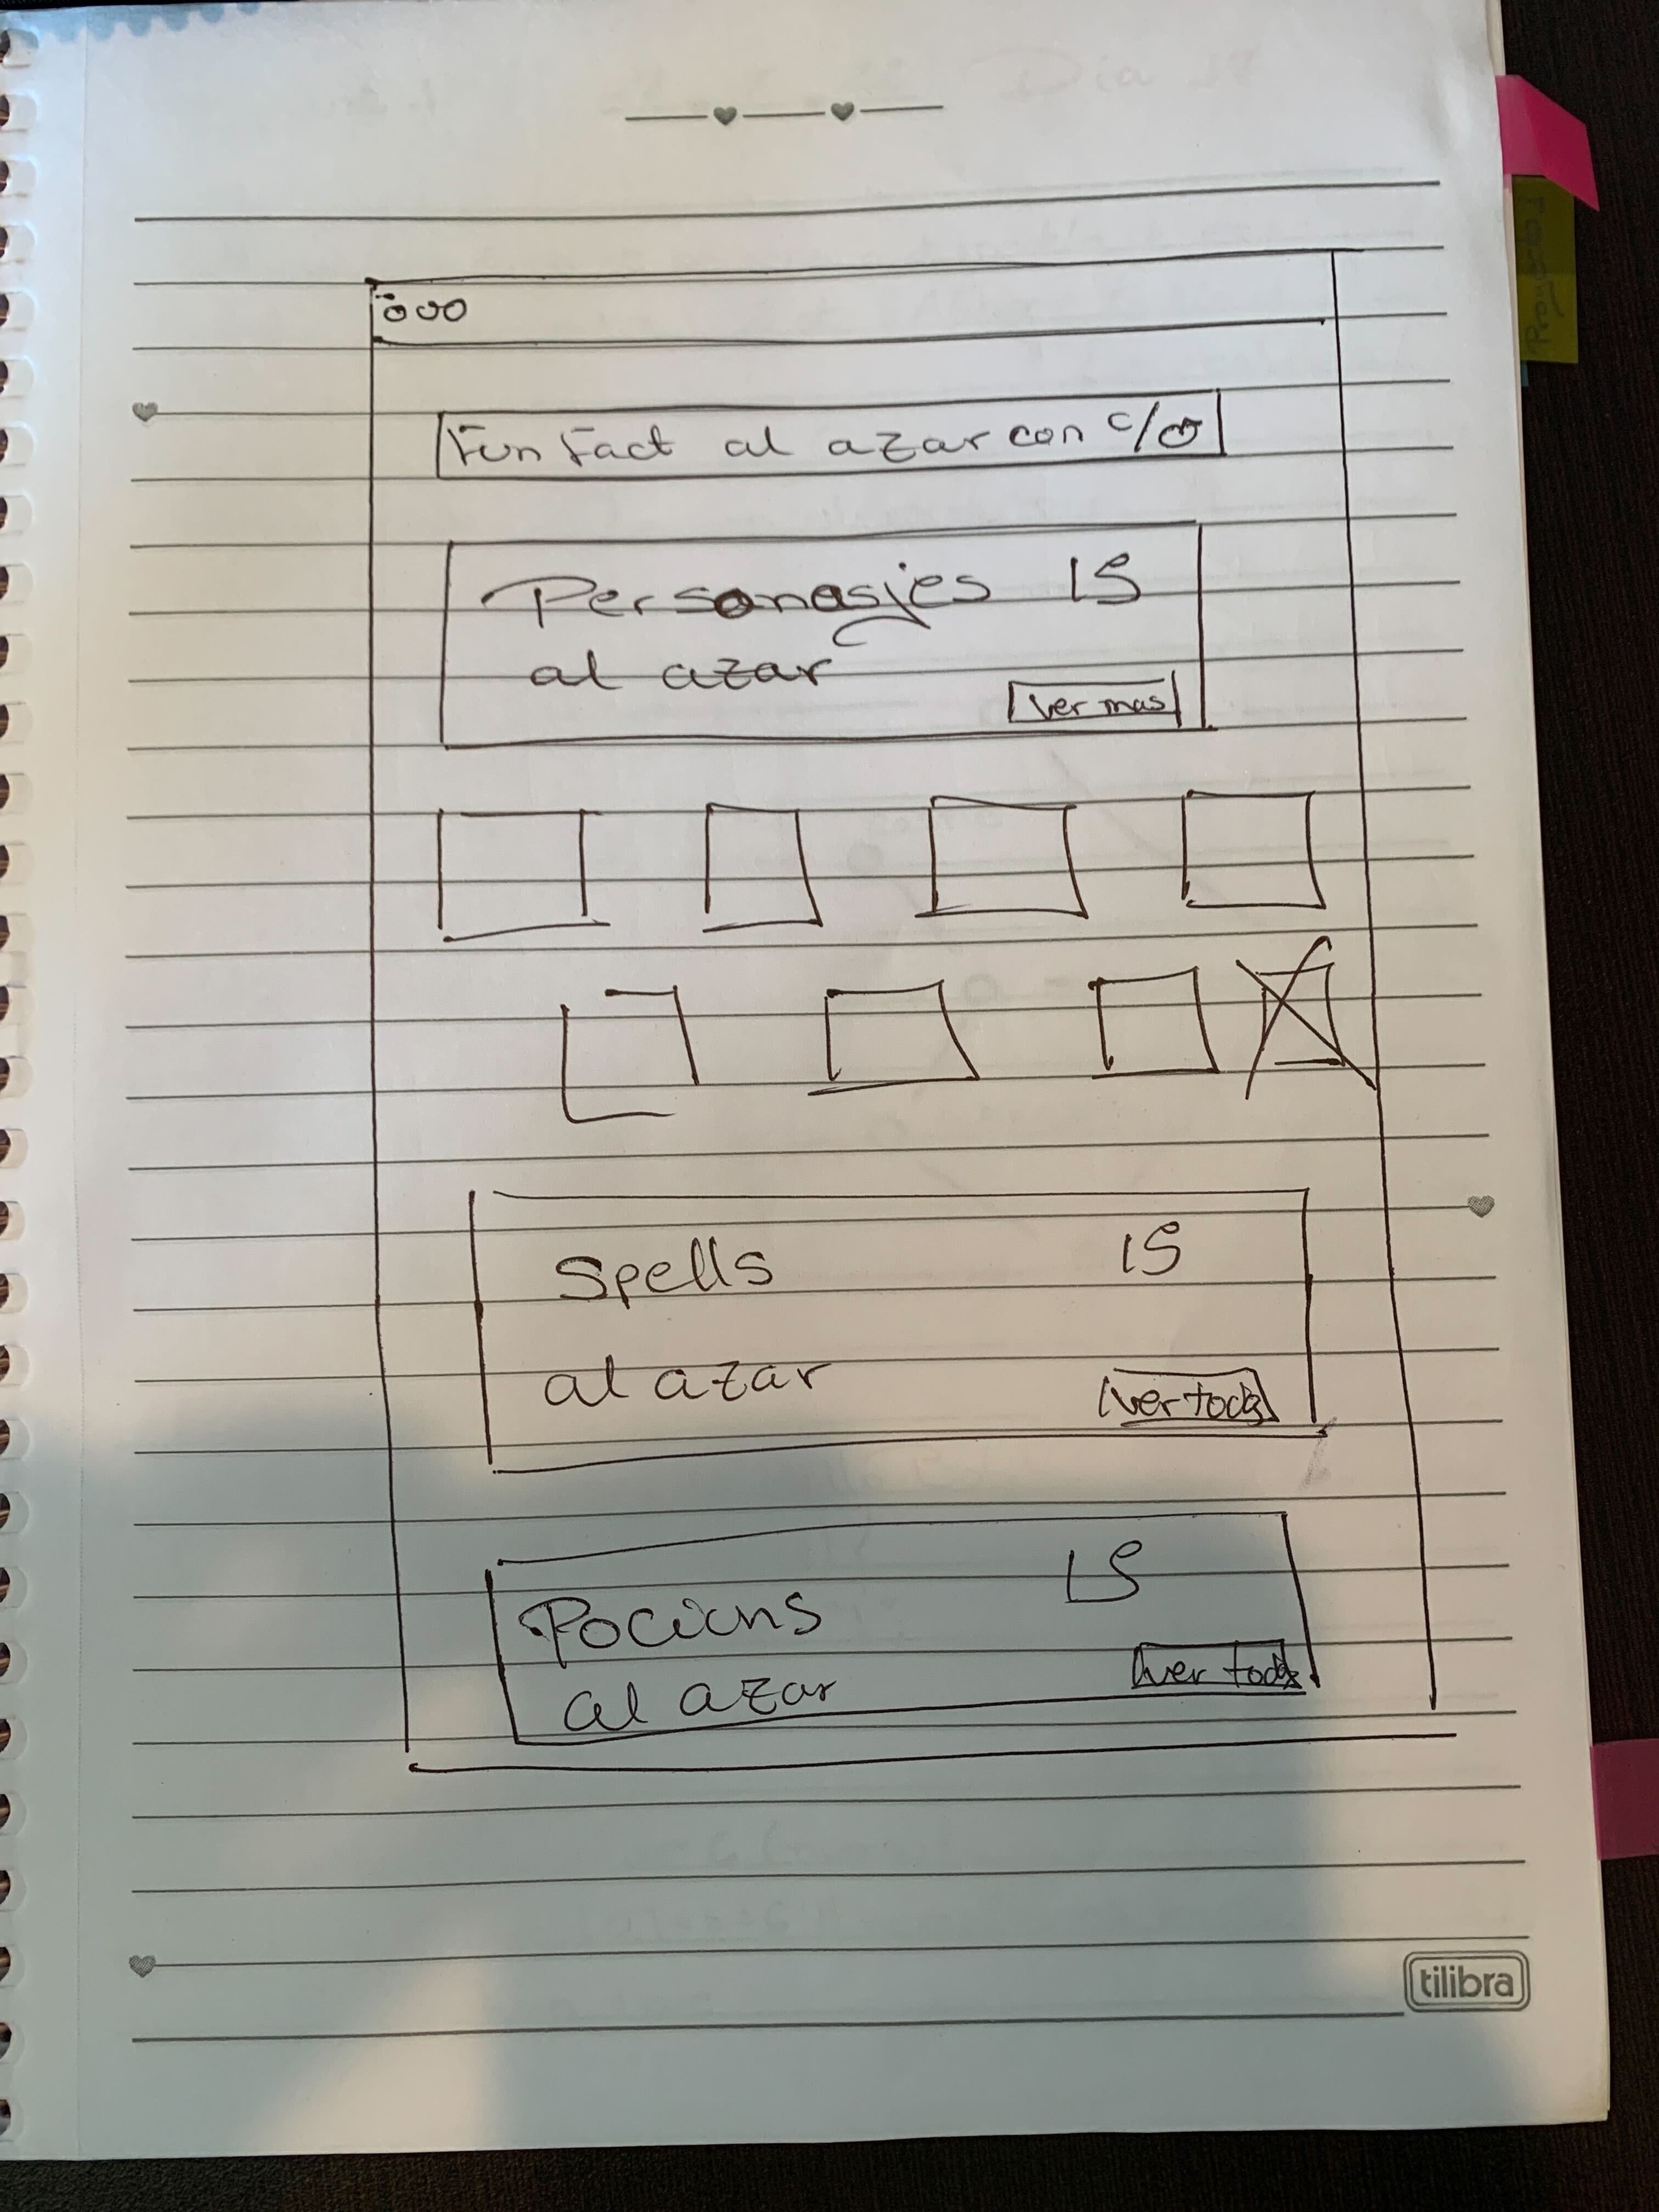 Fun Fact al azar con c/
Personasjes 15
al azar
ver mas
Spells 15
al azar
ver todos
Pocions 15
al azar
ver todos
tilibra